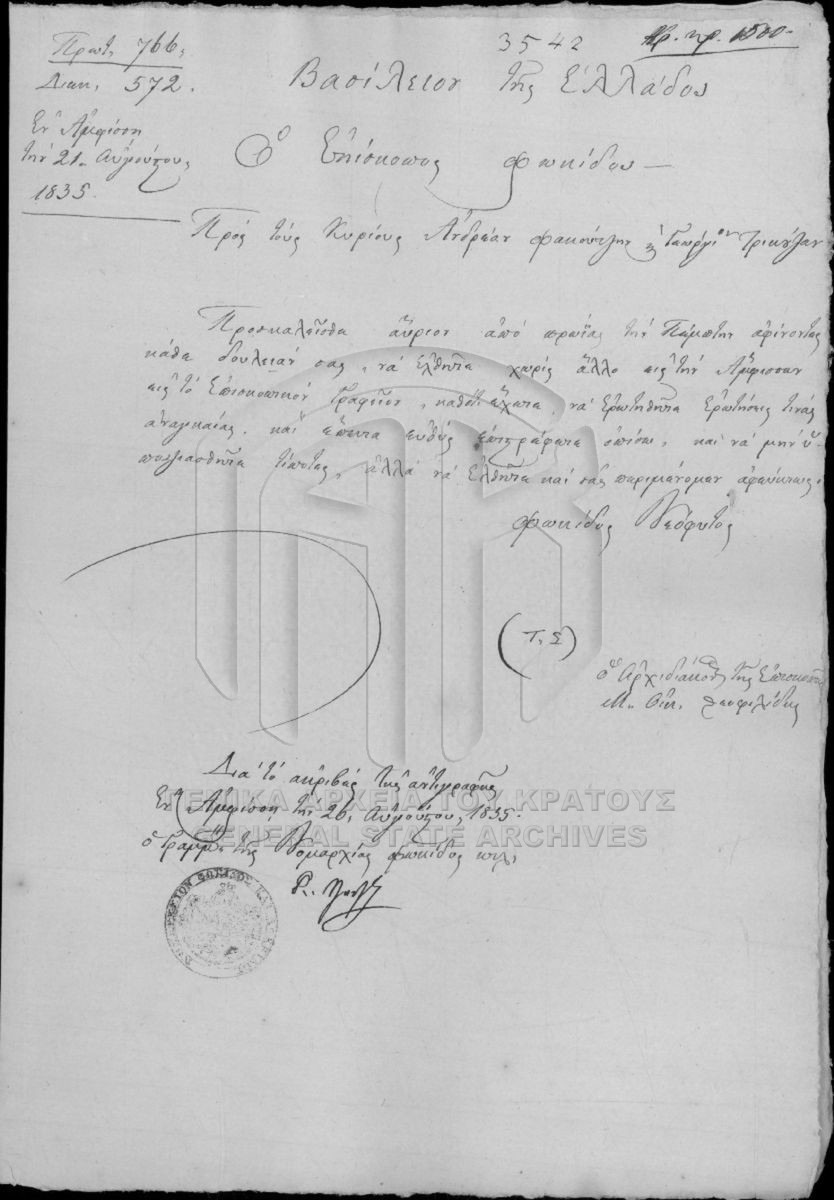 Πρωτ. 766.
3542
Ἀρ. πρ. 1500
Διεκ. 572.
Βασίλειον τῆς Ἑλλάδος
Ἐν Ἀμφίσσῃ
τὴν 21. Αὐγούστου
1835.
Ὁ Ἐπίσκοπος Φωκίδος
Πρὸς τοὺς Κυρίους Ἀνδρέαν καὶ Γεώργιον
Προσκαλεῖσθε αὔριον ἀπὸ πρωΐας τὴν Πέμπτην ἀφίνοντες
κάθε δουλειάν σας, νὰ ἔλθητε χωρὶς ἄλλο εἰς τὴν Ἄμφισσαν
εἰς τὸ Ἐπισκοπικὸν Γραφεῖον, καθότι ἔχετε νὰ ἐρωτηθῆτε ἐρωτήσεις τινὰς
ἀναγκαίας. καὶ ἔπειτα εὐθὺς ἐπιστρέφετε ὀπίσω, καὶ νὰ μὴν ὑ-
ποψιασθῆτε τίποτες, ἀλλὰ νὰ ἔλθητε καὶ σᾶς περιμένομεν ἀφεύκτως.
Φωκίδος Νεόφυτος
(Τ. Σ)
ὁ Ἀρχιδιάκονος τῆς Ἐπισκοπῆς
Διὰ τὸ ἀκριβὲς τῆς ἀντιγραφῆς
Ἐν Ἀμφίσσῃ τῇ 26. Αὐγούστου, 1835.
ΓΕΝΙΚΑ ΑΡΧΕΙΑ ΤΟΥ ΚΡΑΤΟΥΣ
GENERAL STATE ARCHIVES
ὁ Γραμμ. τῆς Νομαρχίας Φωκίδος